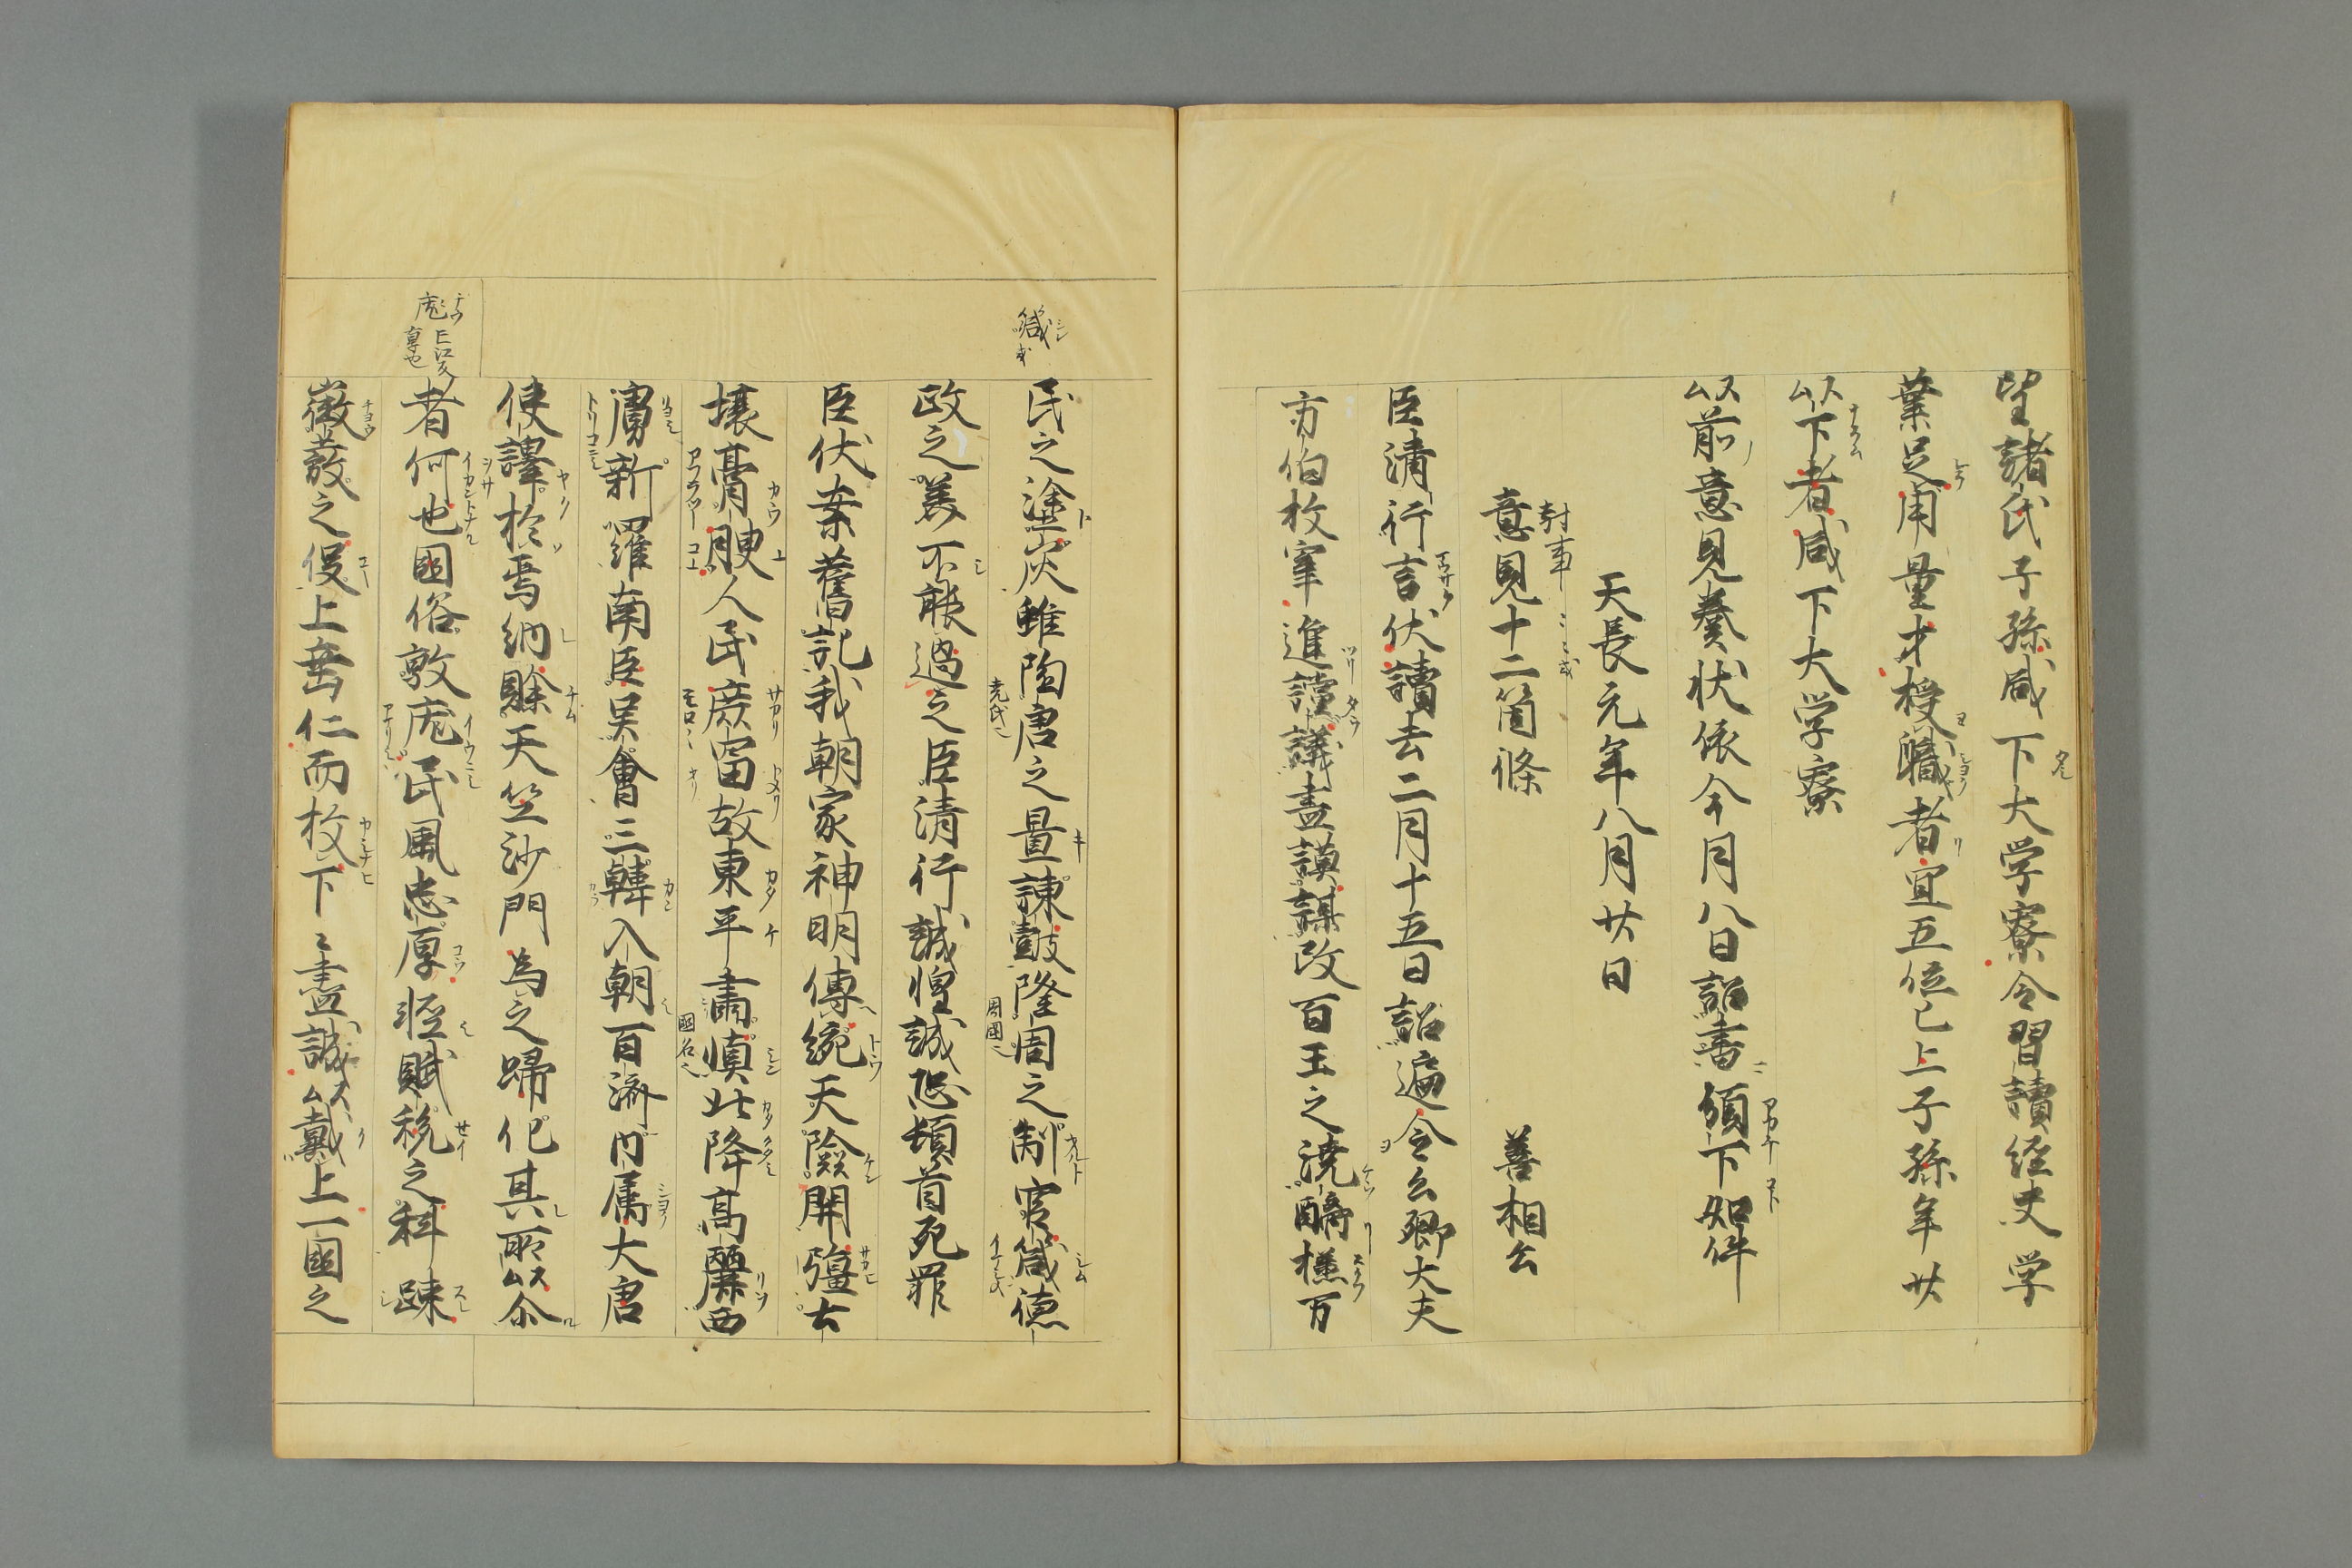 望諸氏子孫咸下大学寮令習讀経史学
業足用量才授職者宜五位已上子孫年廿
以下者咸下大学寮
以前意見奏状依今月八日詔書頒下如件
天長元年八月廿日
意見十二箇條 善相公
封事
臣清行言伏讀去二月十五日詔遍令公卿大夫
方伯牧宰進讜議盡謨謀改百王之澆醨極万
民之塗炭雖陶唐之置諫鼓隆周之制官箴德
堯氏也
周國也
政之美不能過之臣清行誠惶誠恐頓首死罪
臣伏案舊記我朝家神明傳統天險開彊土
壤膏腴人民庶富故東平肅慎北降高麗西
國名也
虜新羅南臣吴會三韓入朝百濟内属大唐
使譯於焉納賝天竺沙門為之歸化其所以尒
者何也國俗敦庬民風忠厚輕賦税之科踈
徴發之役上垂仁而牧下〻盡誠以戴上一國之